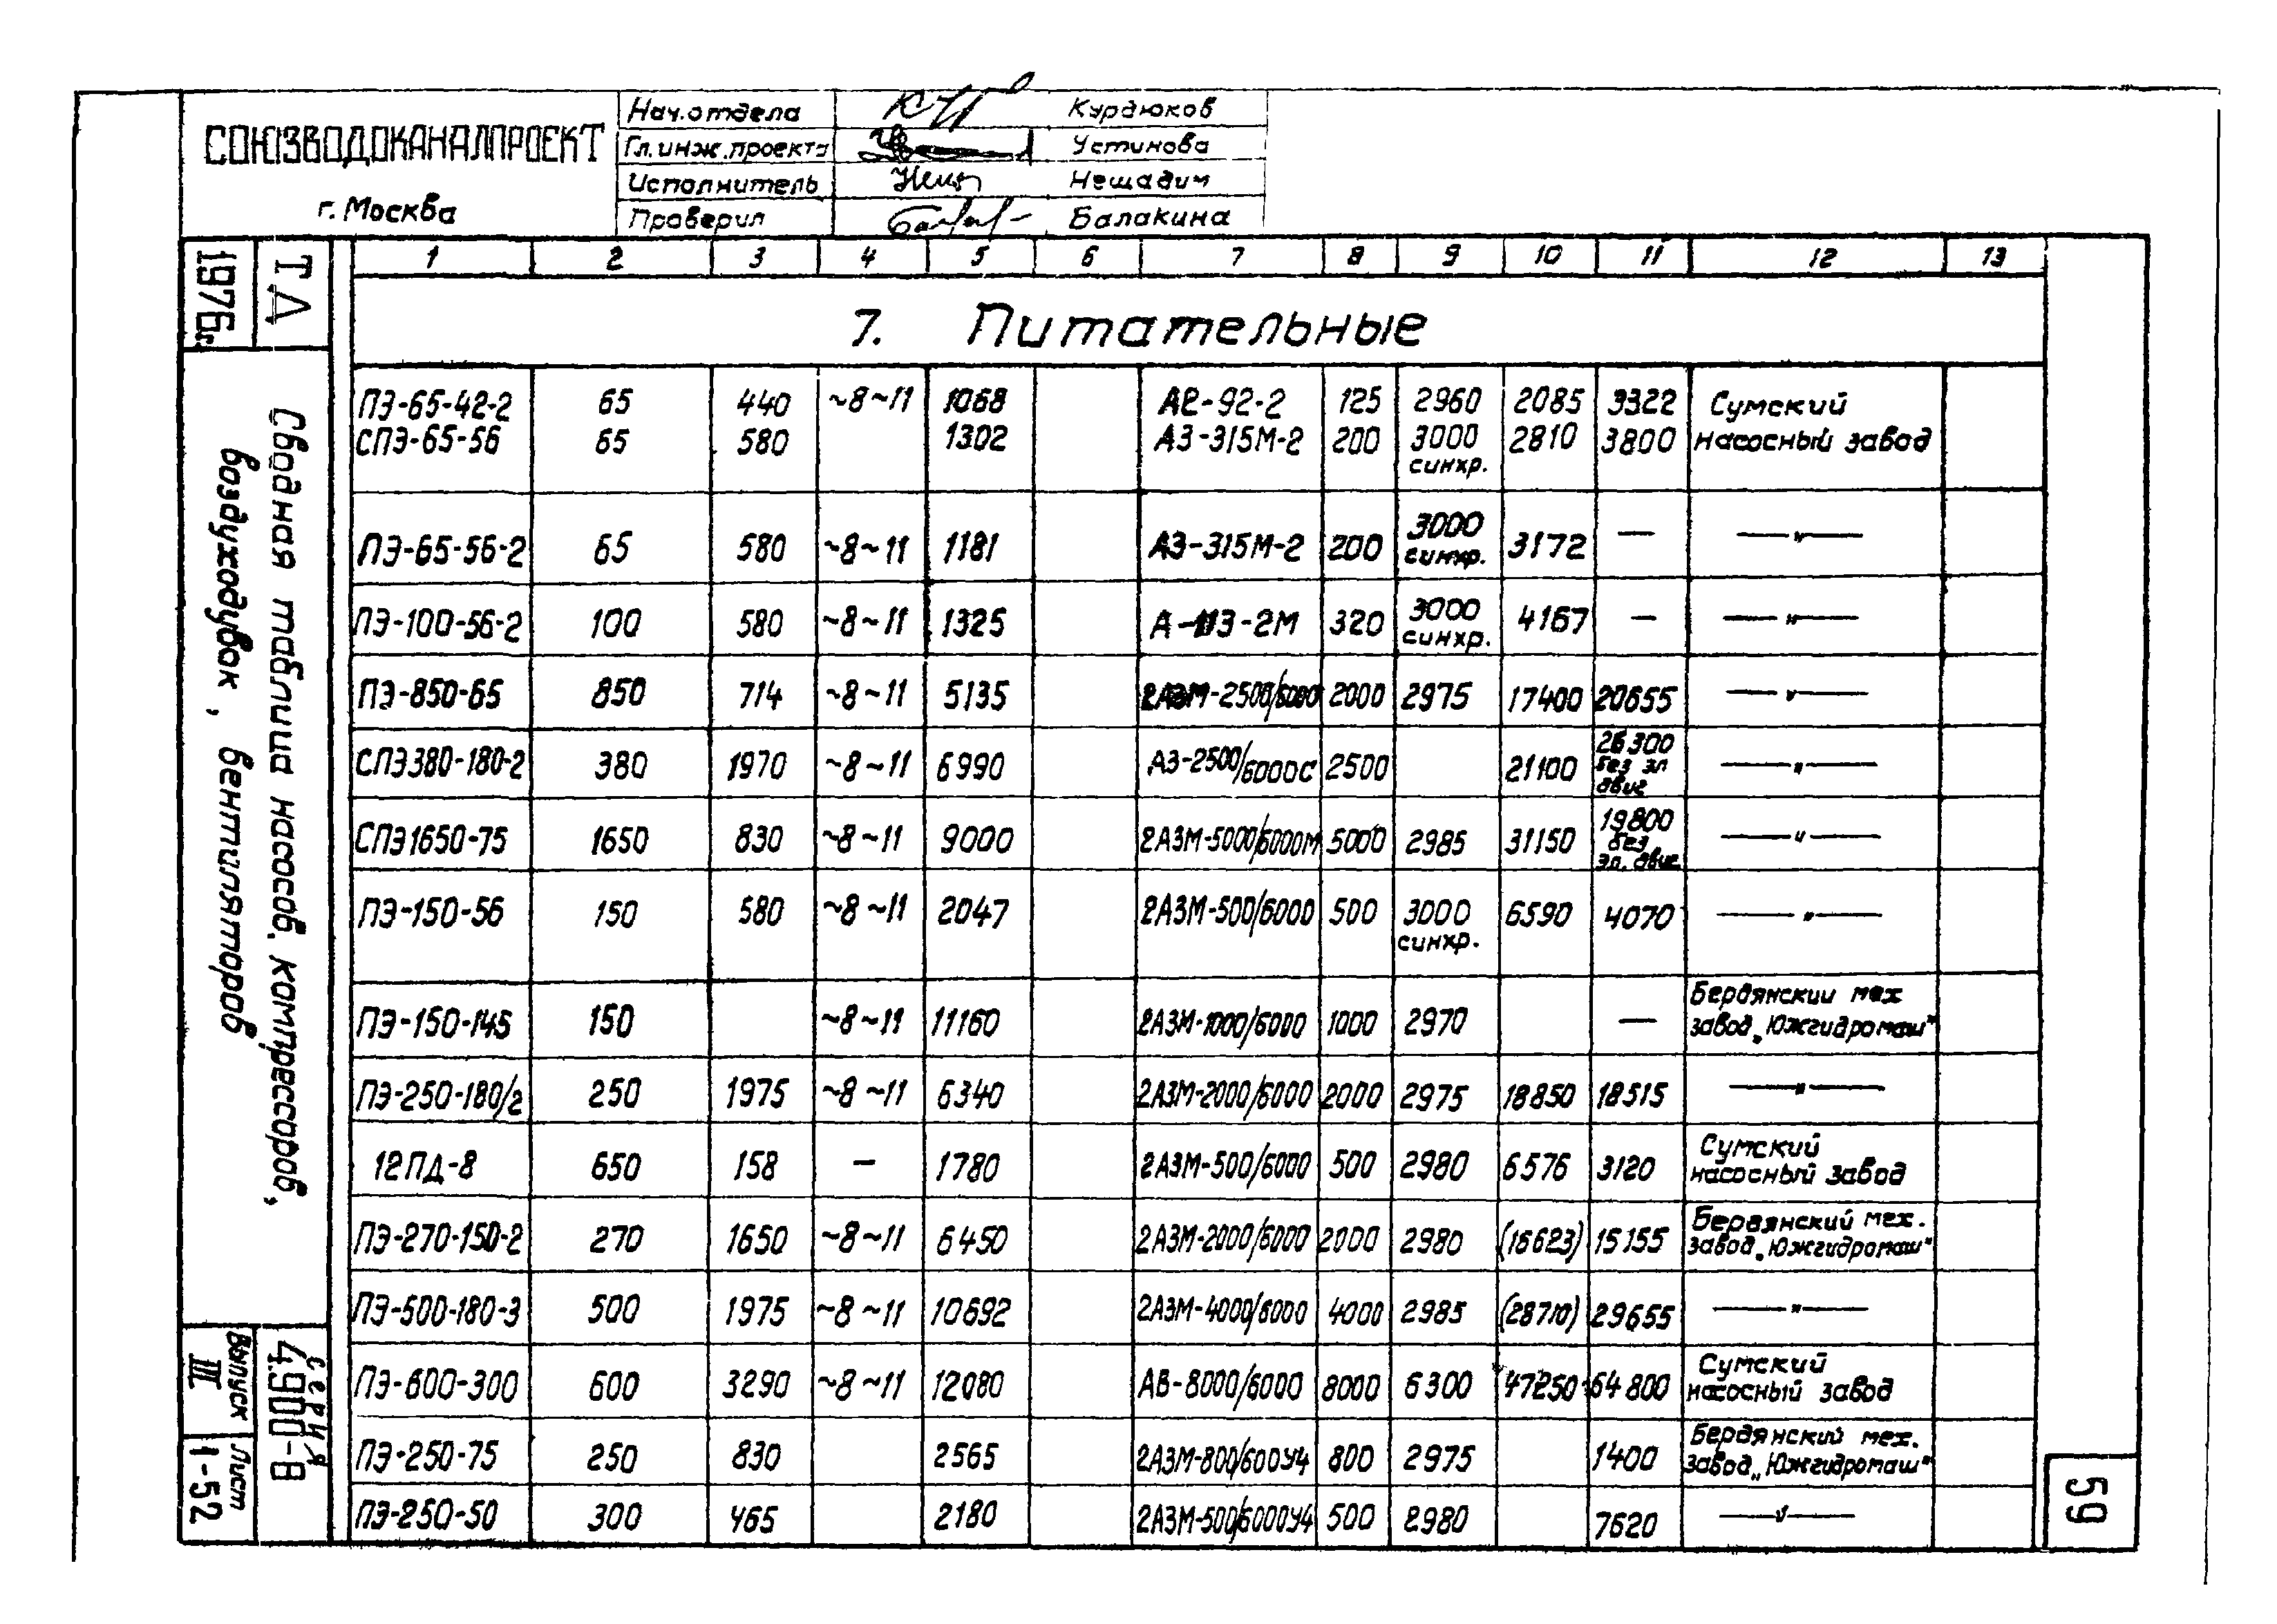 СОЮЗВОДОКАНАЛПРОЕКТ
г. Москва
Нач. отдела Курдюков
Гл. инж. проекта Устинова
Исполнитель Нешадим
Проверил Балакина
1 2 3 4 5 6 7 8 9 10 11 12 13
7. Питательные
ПЭ-65-42-2 65 440 ~8~11 1068 А2-92-2 125 2960 2085 3322 Сумский
СПЭ-65-56 65 580 1302 А3-315М-2 200 3000 2810 3800 насосный завод
синхр.
ПЭ-65-56-2 65 580 ~8~11 1181 А3-315М-2 200 3000 синхр. 3172 — —"—
ПЭ-100-56-2 100 580 ~8~11 1325 А-113-2М 320 3000 синхр. 4167 — —"—
ПЭ-850-65 850 714 ~8~11 5135 2АЗМ-2500/6000 2000 2975 17400 20655 —"—
СПЭ380-180-2 380 1970 ~8~11 6990 АЗ-2500/6000С 2500 21100 26300 без эл двиг —"—
СПЭ1650-75 1650 830 ~8~11 9000 2АЗМ-5000/6000М 5000 2985 31150 19800 без эл. двиг —"—
ПЭ-150-56 150 580 ~8~11 2047 2АЗМ-500/6000 500 3000 6590 4070 —"—
синхр.
ПЭ-150-145 150 ~8~11 11160 2АЗМ-1000/6000 1000 2970 — Бердянский мех завод „Южгидромаш"
ПЭ-250-180/2 250 1975 ~8~11 6340 2АЗМ-2000/6000 2000 2975 18850 18515 —"—
12ПД-8 650 158 — 1780 2АЗМ-500/6000 500 2980 6576 3120 Сумский насосный завод
ПЭ-270-150-2 270 1650 ~8~11 6450 2АЗМ-2000/6000 2000 2980 (16623) 15155 Бердянский мех. завод „Южгидромаш"
ПЭ-500-180-3 500 1975 ~8~11 10692 2АЗМ-4000/6000 4000 2985 (28710) 29655 —"—
ПЭ-600-300 600 3290 ~8~11 12080 АВ-8000/6000 8000 6300 47250 64800 Сумский насосный завод
ПЭ-250-75 250 830 2565 2АЗМ-800/600У4 800 2975 1400 Бердянский мех. завод „Южгидромаш"
ПЭ-250-50 300 465 2180 2АЗМ-500/6000У4 500 2980 7620 —"—
ТД
1976г.
Сводная таблица насосов, компрессоров,
воздуходувок, вентиляторов
серия
4.900-8
Выпуск III
Лист 1-52
59